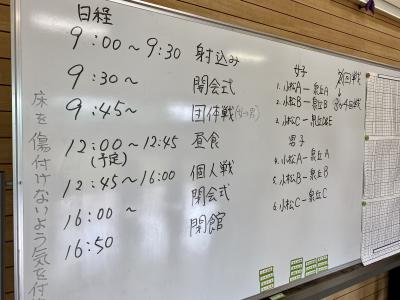 日程
9:00〜9:30 射込み
9:30〜 開会式
9:45〜 団体戦(女→男)
12:00〜12:45 昼食
(予定)
12:45〜16:00 個人戦
16:00〜 閉会式
16:50 閉館
女子
1. 小松A－泉丘A
2. 小松B－泉丘B
3. 小松C－泉丘D&E
男子
4. 小松A－泉丘A
5. 小松B－泉丘B
6. 小松C－泉丘C
回戦
4回戦
床を傷付けないよう気を付